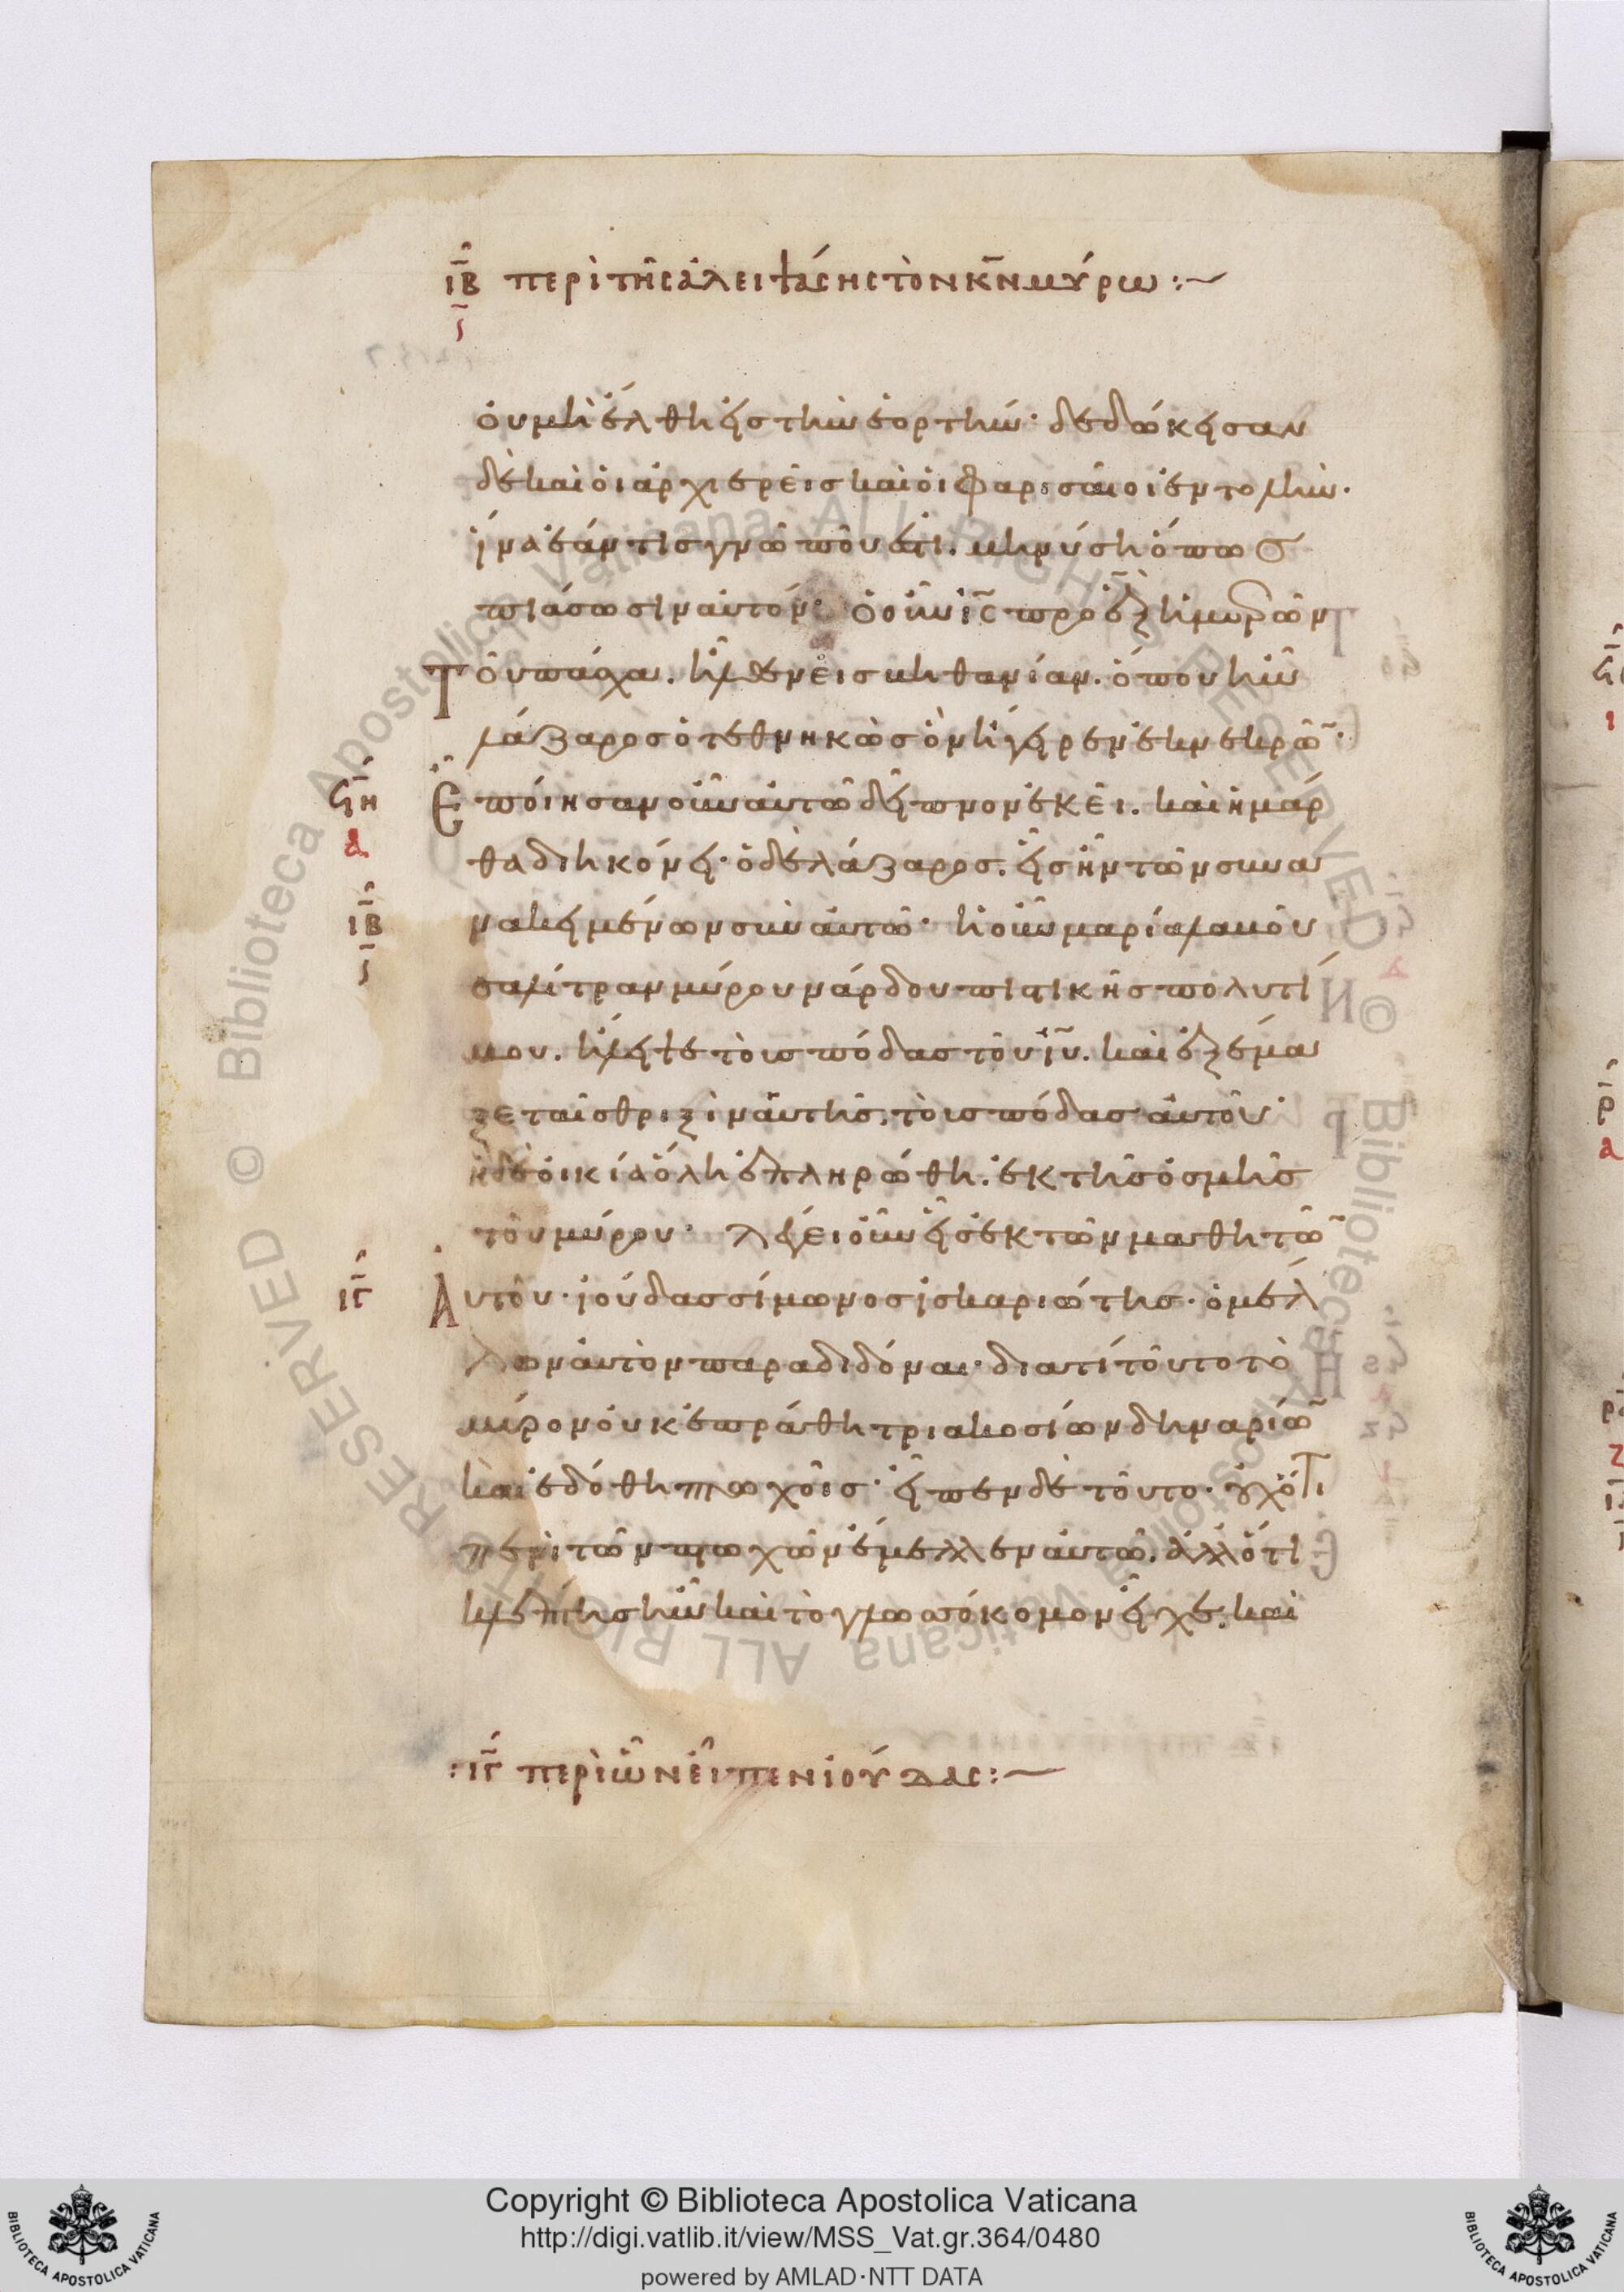 ΙΒ περὶ τῆς ἀλειψάσης τὸν κν μύρω :~
ς
οὐ μὴ ἔλθη εἰς τὴν ἑορτήν· δεδώκεισαν
δὲ καὶ οἱ ἀρχιερεῖς καὶ οἱ φαρισαῖοι ἐντολὴν·
ἵνα ἐάν τις γνῶ ποῦ ἐστι. μηνύση ὅπως
πιάσωσιν αὐτόν· ὁ οὖν ις πρὸ ἓξ ἡμερῶν
Τοῦ πάσχα. ἦλθεν εἰς βηθανίαν. ὅπου ἦν
λάζαρος ὁ τεθνηκὼς ὃν ἤγειρεν ἐκ νεκρῶ·
ϟη Ἐποίησαν οὖν αὐτῶ δεῖπνον ἐκεῖ. καὶ ἡ μάρ
α θα διηκόνει· ὁ δὲ λάζαρος. εἷς ἦν τῶν συνα
ΙΒ νακειμένων σὺν αὐτῶ· ἡ οὖν μαρία λαβοῦ
ς σα λίτραν μύρου νάρδου πιστικῆς πολυτί
μου. ἤλειψε τοὺς πόδας τοῦ ιυ. καὶ ἐξέμα
ξε ταῖς θριξὶν αὐτῆς, τοὺς πόδας αὐτοῦ·
ἡ δὲ οἰκία ὅλη ἐπληρώθη. ἐκ τῆς ὀσμῆς
τοῦ μύρου· λέγει οὖν εἷς ἐκ τῶν μαθητῶ
ΙΓ Αὐτοῦ· ἰούδας σίμωνος ἰσκαριώτης· ὁ μέλ
λων αὐτὸν παραδιδόναι· διατί τοῦτο τὸ
μύρον οὐκ ἐπράθη τριακοσίων δηναρίω
καὶ ἐδόθη πτωχοῖς· εἶπεν δὲ τοῦτο· οὐχ ὅτι
περὶ τῶν πτωχῶν ἔμελλεν αὐτῶ. ἀλλ ὅτι
κλέπτης ἦν καὶ τὸ γλωσσόκομον εἶχε. καὶ
:ΙΓ περὶ ὧν εἶπεν ἰούδας :~
Copyright © Biblioteca Apostolica Vaticana
http://digi.vatlib.it/view/MSS_Vat.gr.364/0480
powered by AMLAD·NTT DATA